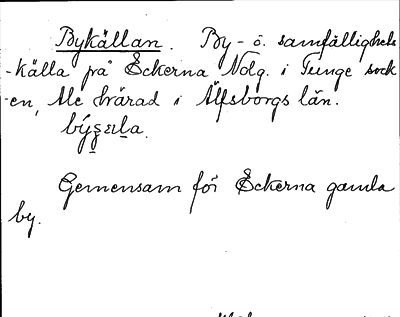 Bykällan. By- o. samfällighets
-källa på Eckerna Nolg. i Tunge sock
-en, Ale härad i Älfsborgs län.
Gemensam för Eckerna gamla
by.